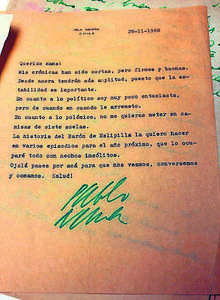 ISLA NEGRA
CHILE
28-11-1968
Querido Hans:
Mis crónicas han sido cortas, pero firmes y buenas.
Desde ahora tendrán más amplitud, puesto que la es-
tabilidad es importante.
En cuanto a lo político soy muy poco entusiasta,
pero de cuando en cuando le arresto.
En cuanto a lo polémico, no me quieras meter en ca-
misas de siete suelas.
La historia del Bardo de Melipilla la quiero hacer
en varios episodios para el año próximo, que lo ocu-
paré todo con hechos insólitos.
Ojalá pases por acá para que nos veamos, conversemos
y comamos. Salud!
Pablo
Neruda